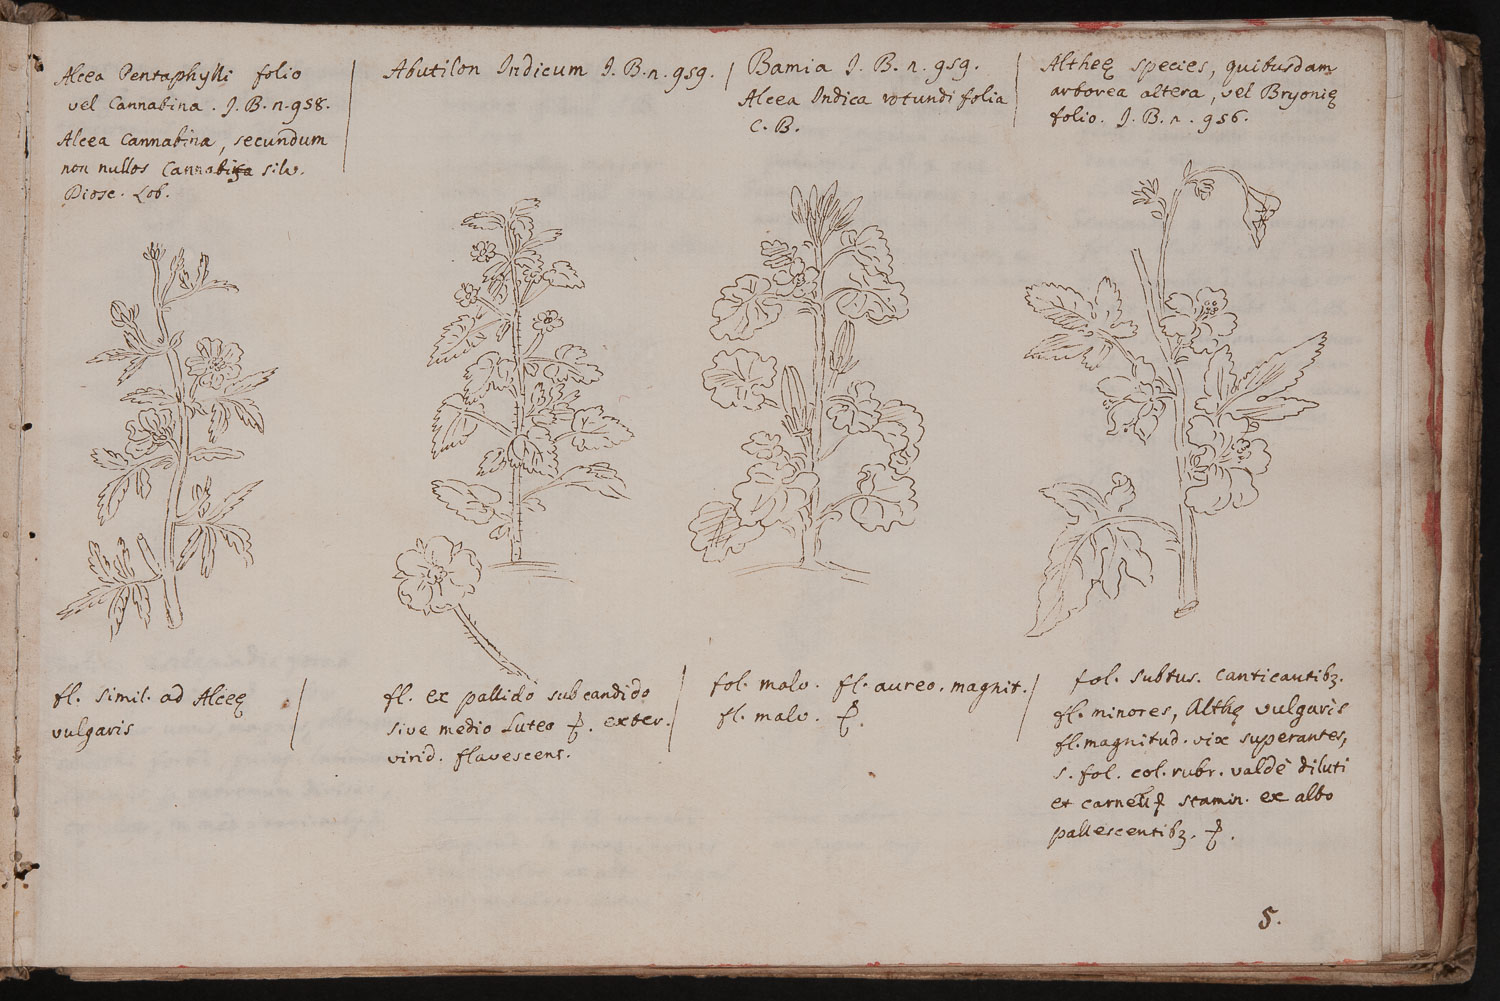 Alcea Pentaphylli folio
vel Cannabina. J. B. n. 958.
Alcea Cannabina, secundum
non nullos Cannabina silv.
Diosc. Lob.
Abutilon Indicum J. B. n. 959.
Bamia J. B. n. 959.
Alcea Indica rotundifolia
C. B.
Altheę species, quibusdam
arborea altera, vel Bryonię
folio. J. B. n. 956.
fl. simil. ad Alceę
vulgaris
fl. ex pallido subcandido
sive medio Luteo exter.
virid. flavescens.
fol. malv. fl. aureo. magnit.
fl. malv.
fol. subtus. canticantibꝫ.
fl. minores, Althę vulgaris
fl. magnitud. vix superantes,
s. fol. col. rubr. valdè diluti
et carnei stamin. ex albo
pallescentibꝫ.
5.